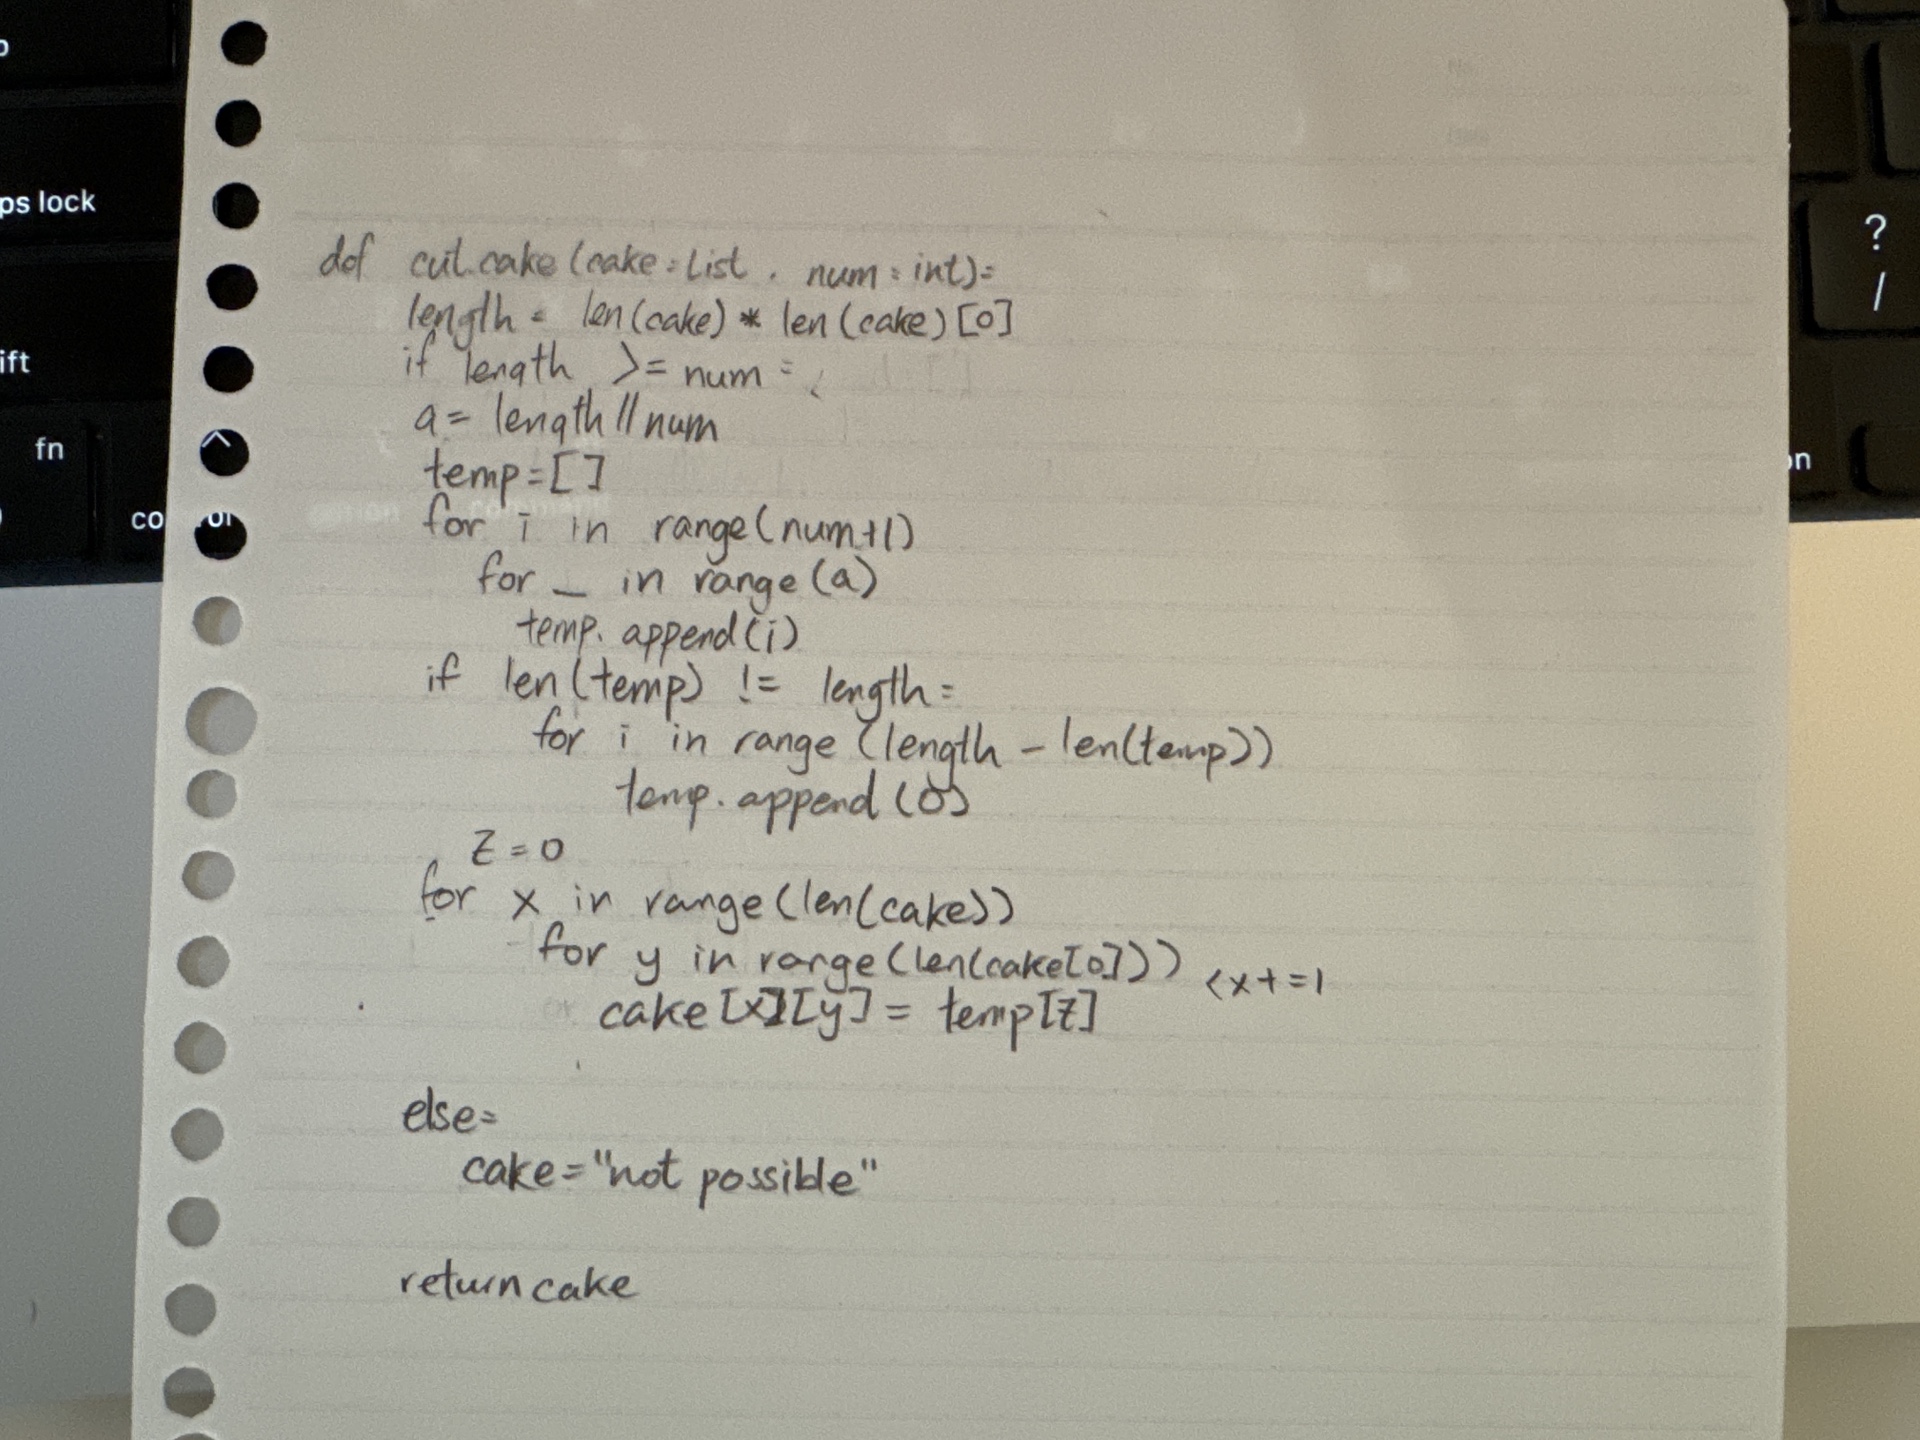 ps lock
ift
fn
^
co
?
/
on
def cut_cake (cake: List, num: int):
length = len(cake) * len(cake)[0]
if length >= num :
a = length // num
temp = []
for i in range(num+1)
for _ in range(a)
temp.append(i)
if len(temp) != length:
for i in range (length - len(temp))
temp.append(0)
z = 0
for x in range(len(cake))
for y in range(len(cake[0])) <x+=1
cake[x][y] = temp[z]
else:
cake = "not possible"
return cake